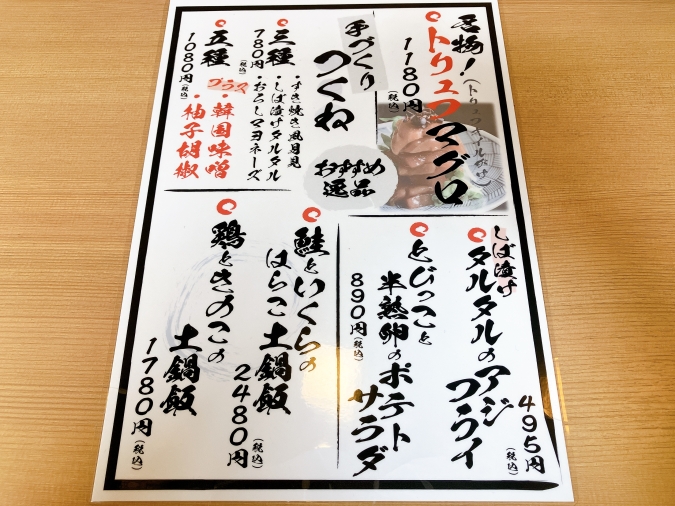 名物！
トリュフマグロ
(トリュフオイルがけ)
1180円(税込)
手づくり
つくね
三種
780円(税込)
・すき焼き風月見
・しば漬けタルタル
・おろしマヨネーズ
五種
1080円(税込)
プラス
・韓国味噌
・柚子胡椒
おすすめ
逸品
しば漬け
タルタルのアジフライ
495円(税込)
とびっこと
半熟卵のポテトサラダ
890円(税込)
鮭といくらの
はらこ土鍋飯
2480円(税込)
鶏ときのこの
土鍋飯
1780円(税込)